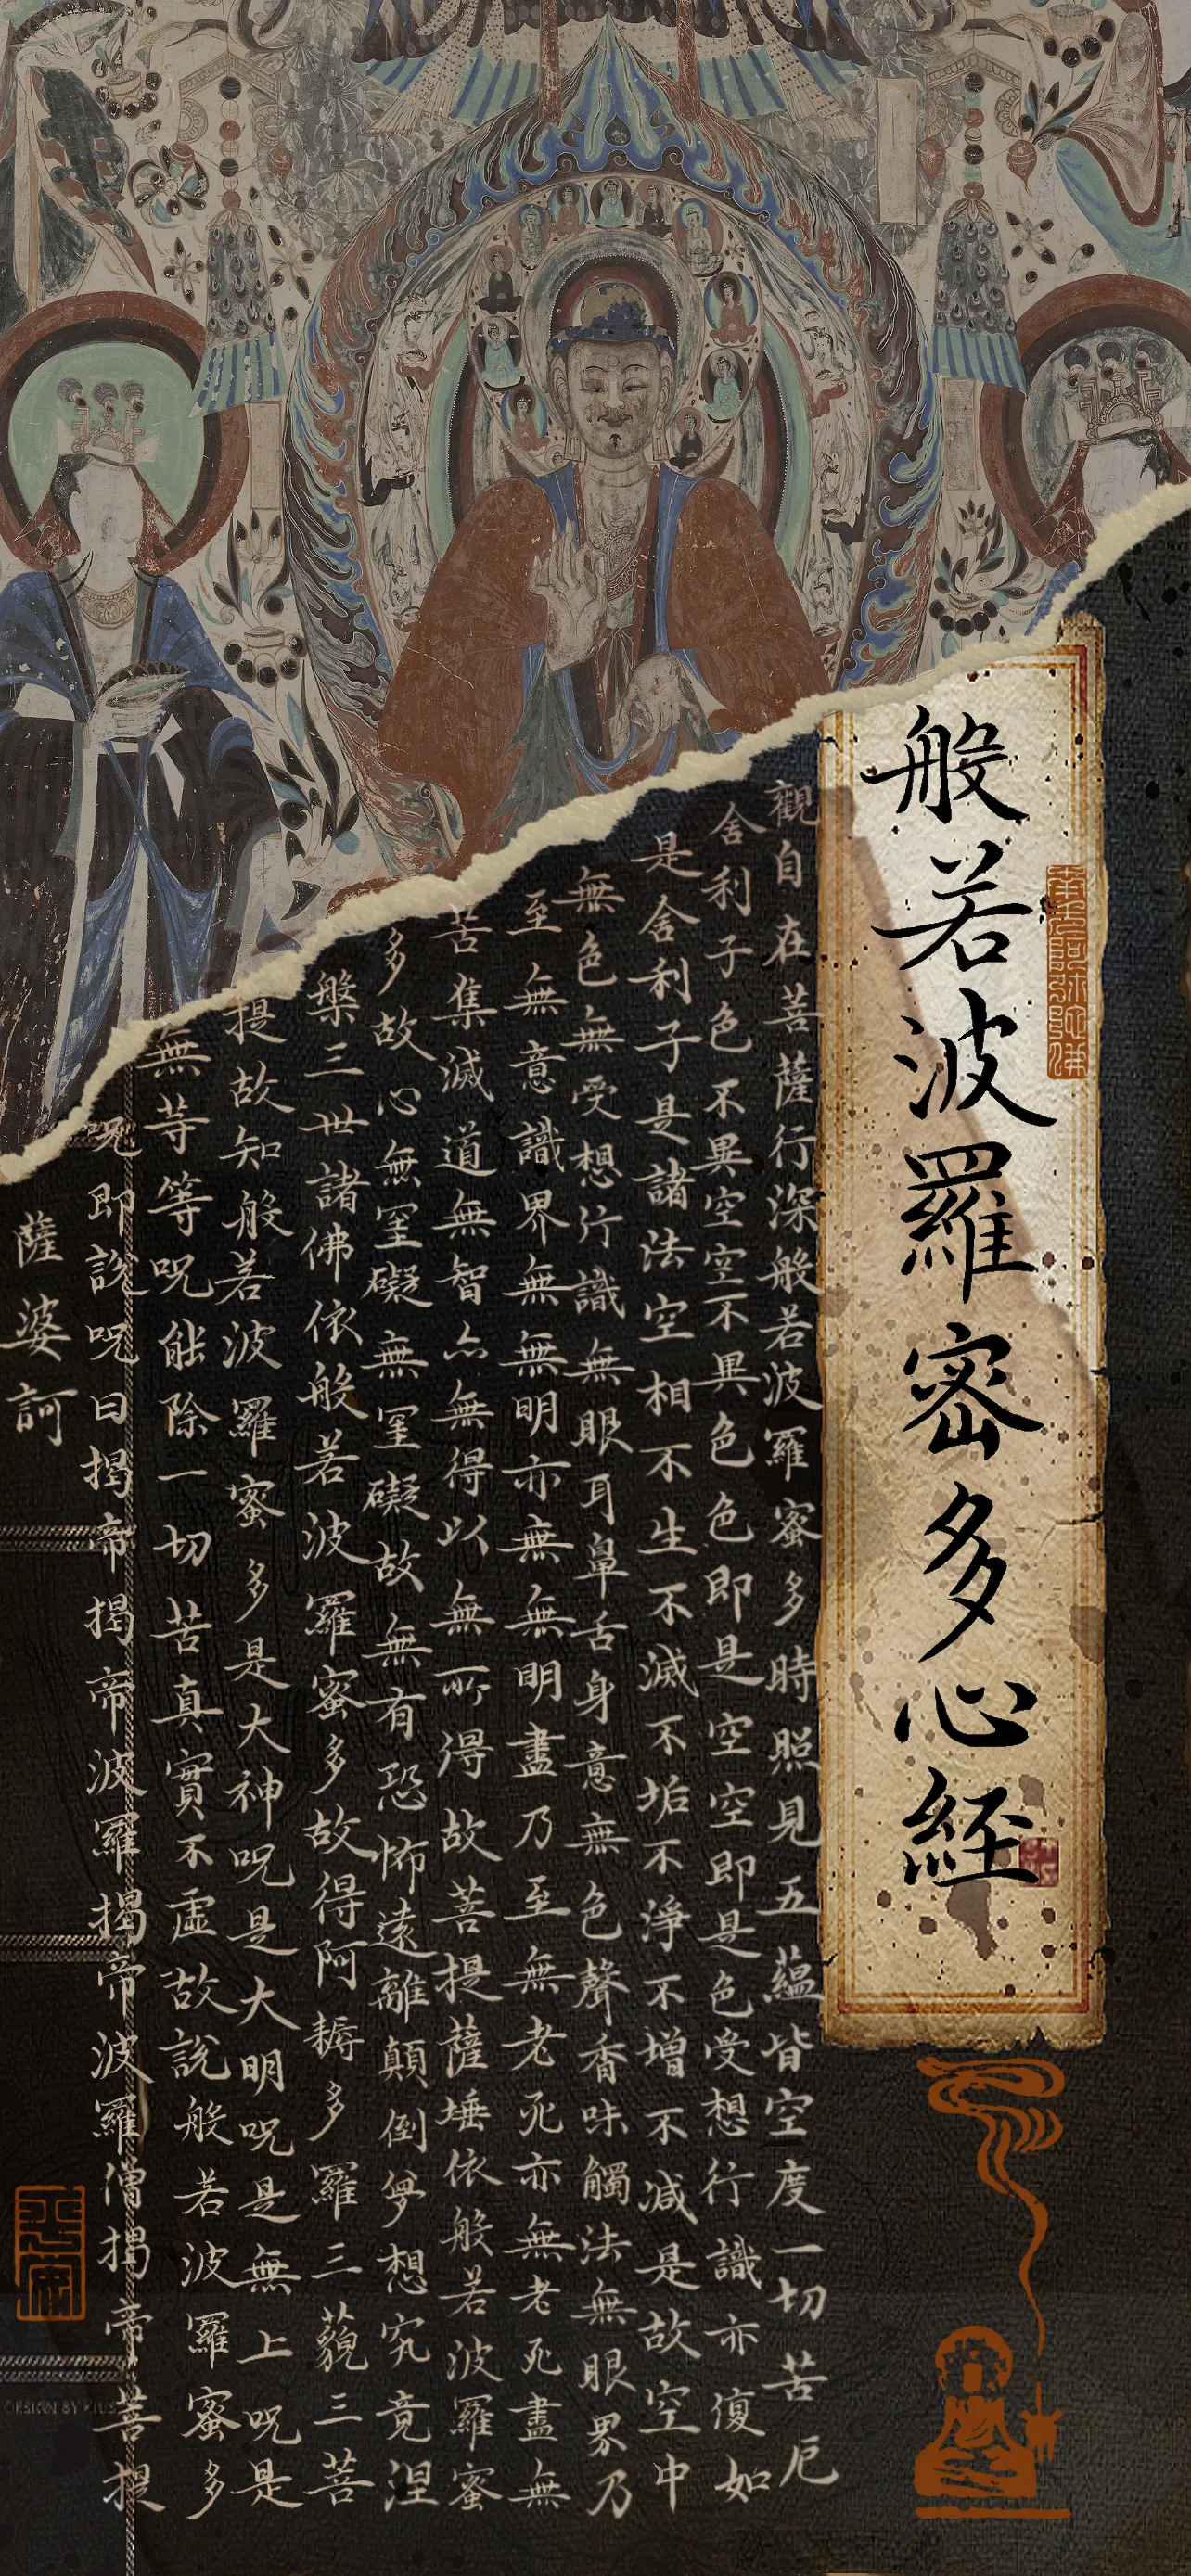 般若波羅密多心経
南无阿弥陀佛
觀自在菩薩行深般若波羅蜜多時照見五蘊皆空度一切苦厄
舍利子色不異空空不異色色即是空空即是色受想行識亦復如
是舍利子是諸法空相不生不滅不垢不淨不增不減是故空中
無色無受想行識無眼耳鼻舌身意無色聲香味觸法無眼界乃
至無意識界無無明亦無無明盡乃至無老死亦無老死盡無
苦集滅道無智亦無得以無所得故菩提薩埵依般若波羅蜜
多故心無罣礙無罣礙故無有恐怖遠離顛倒夢想究竟涅
槃三世諸佛依般若波羅蜜多故得阿耨多羅三藐三菩
提故知般若波羅蜜多是大神呪是大明呪是無上呪是
無等等呪能除一切苦真實不虛故說般若波羅蜜多
呪即說呪曰揭帝揭帝波羅揭帝波羅僧揭帝菩提
薩婆訶
DESIGN BY